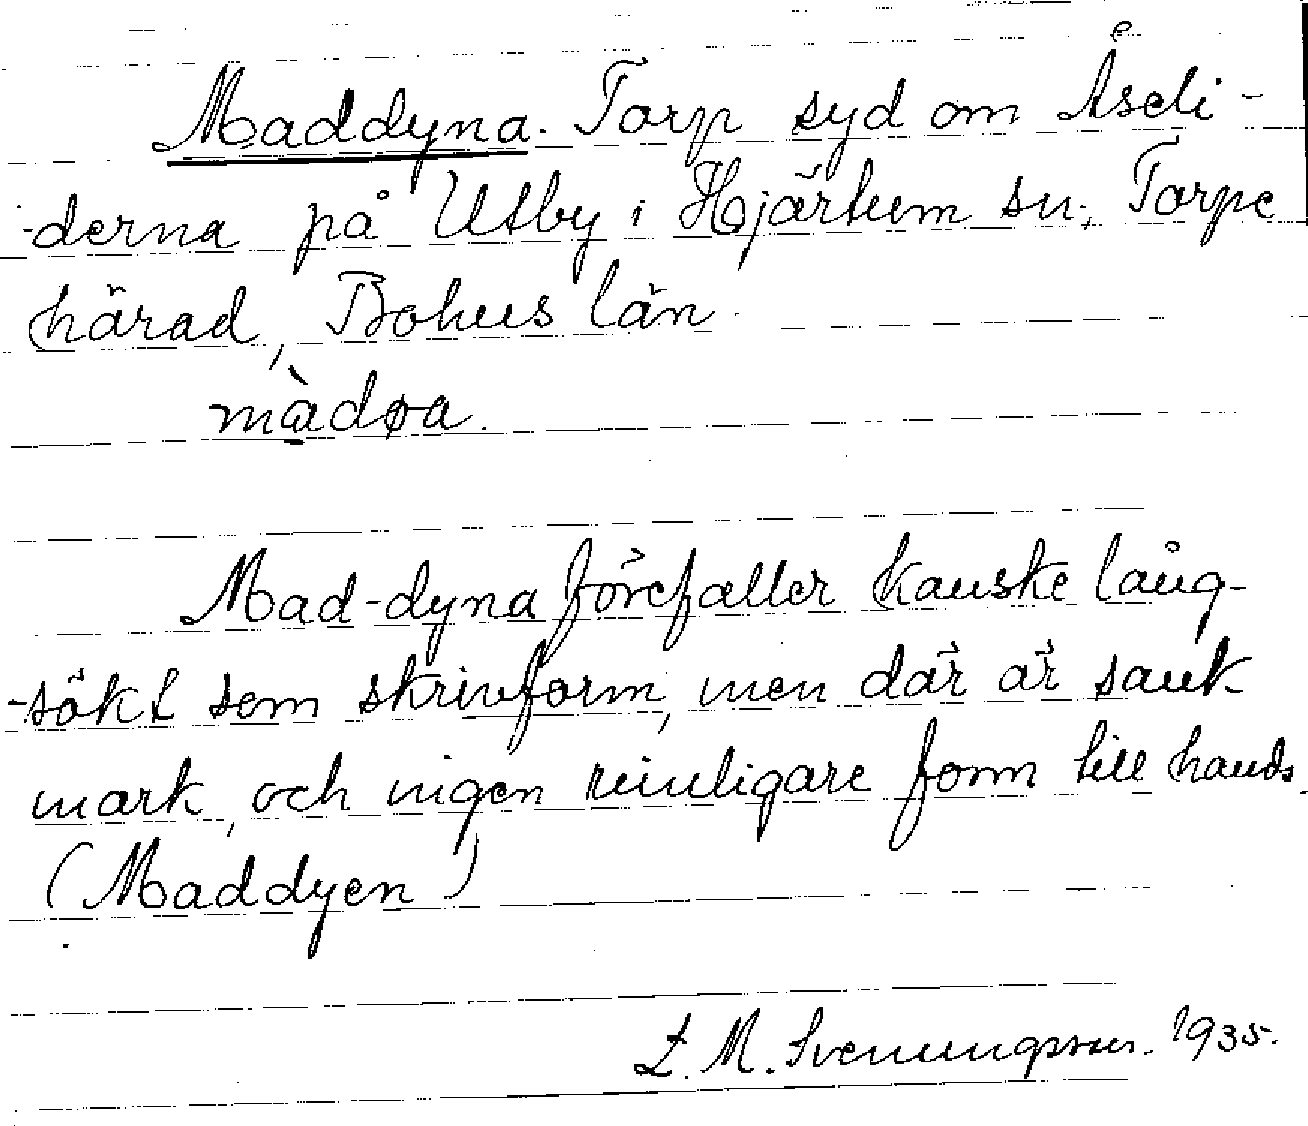 Maddyna. Torp syd om Åseli-
-derna på Utby i Hjärtum sn; Torpe
härad, Bohus län
màdøa.
Mad-dyna förefaller kanske lång-
-sökt som skrivform, men där är sank
mark, och ingen rimligare form till hands.
(Maddyen)
L. M. Svenungsson. 1935.